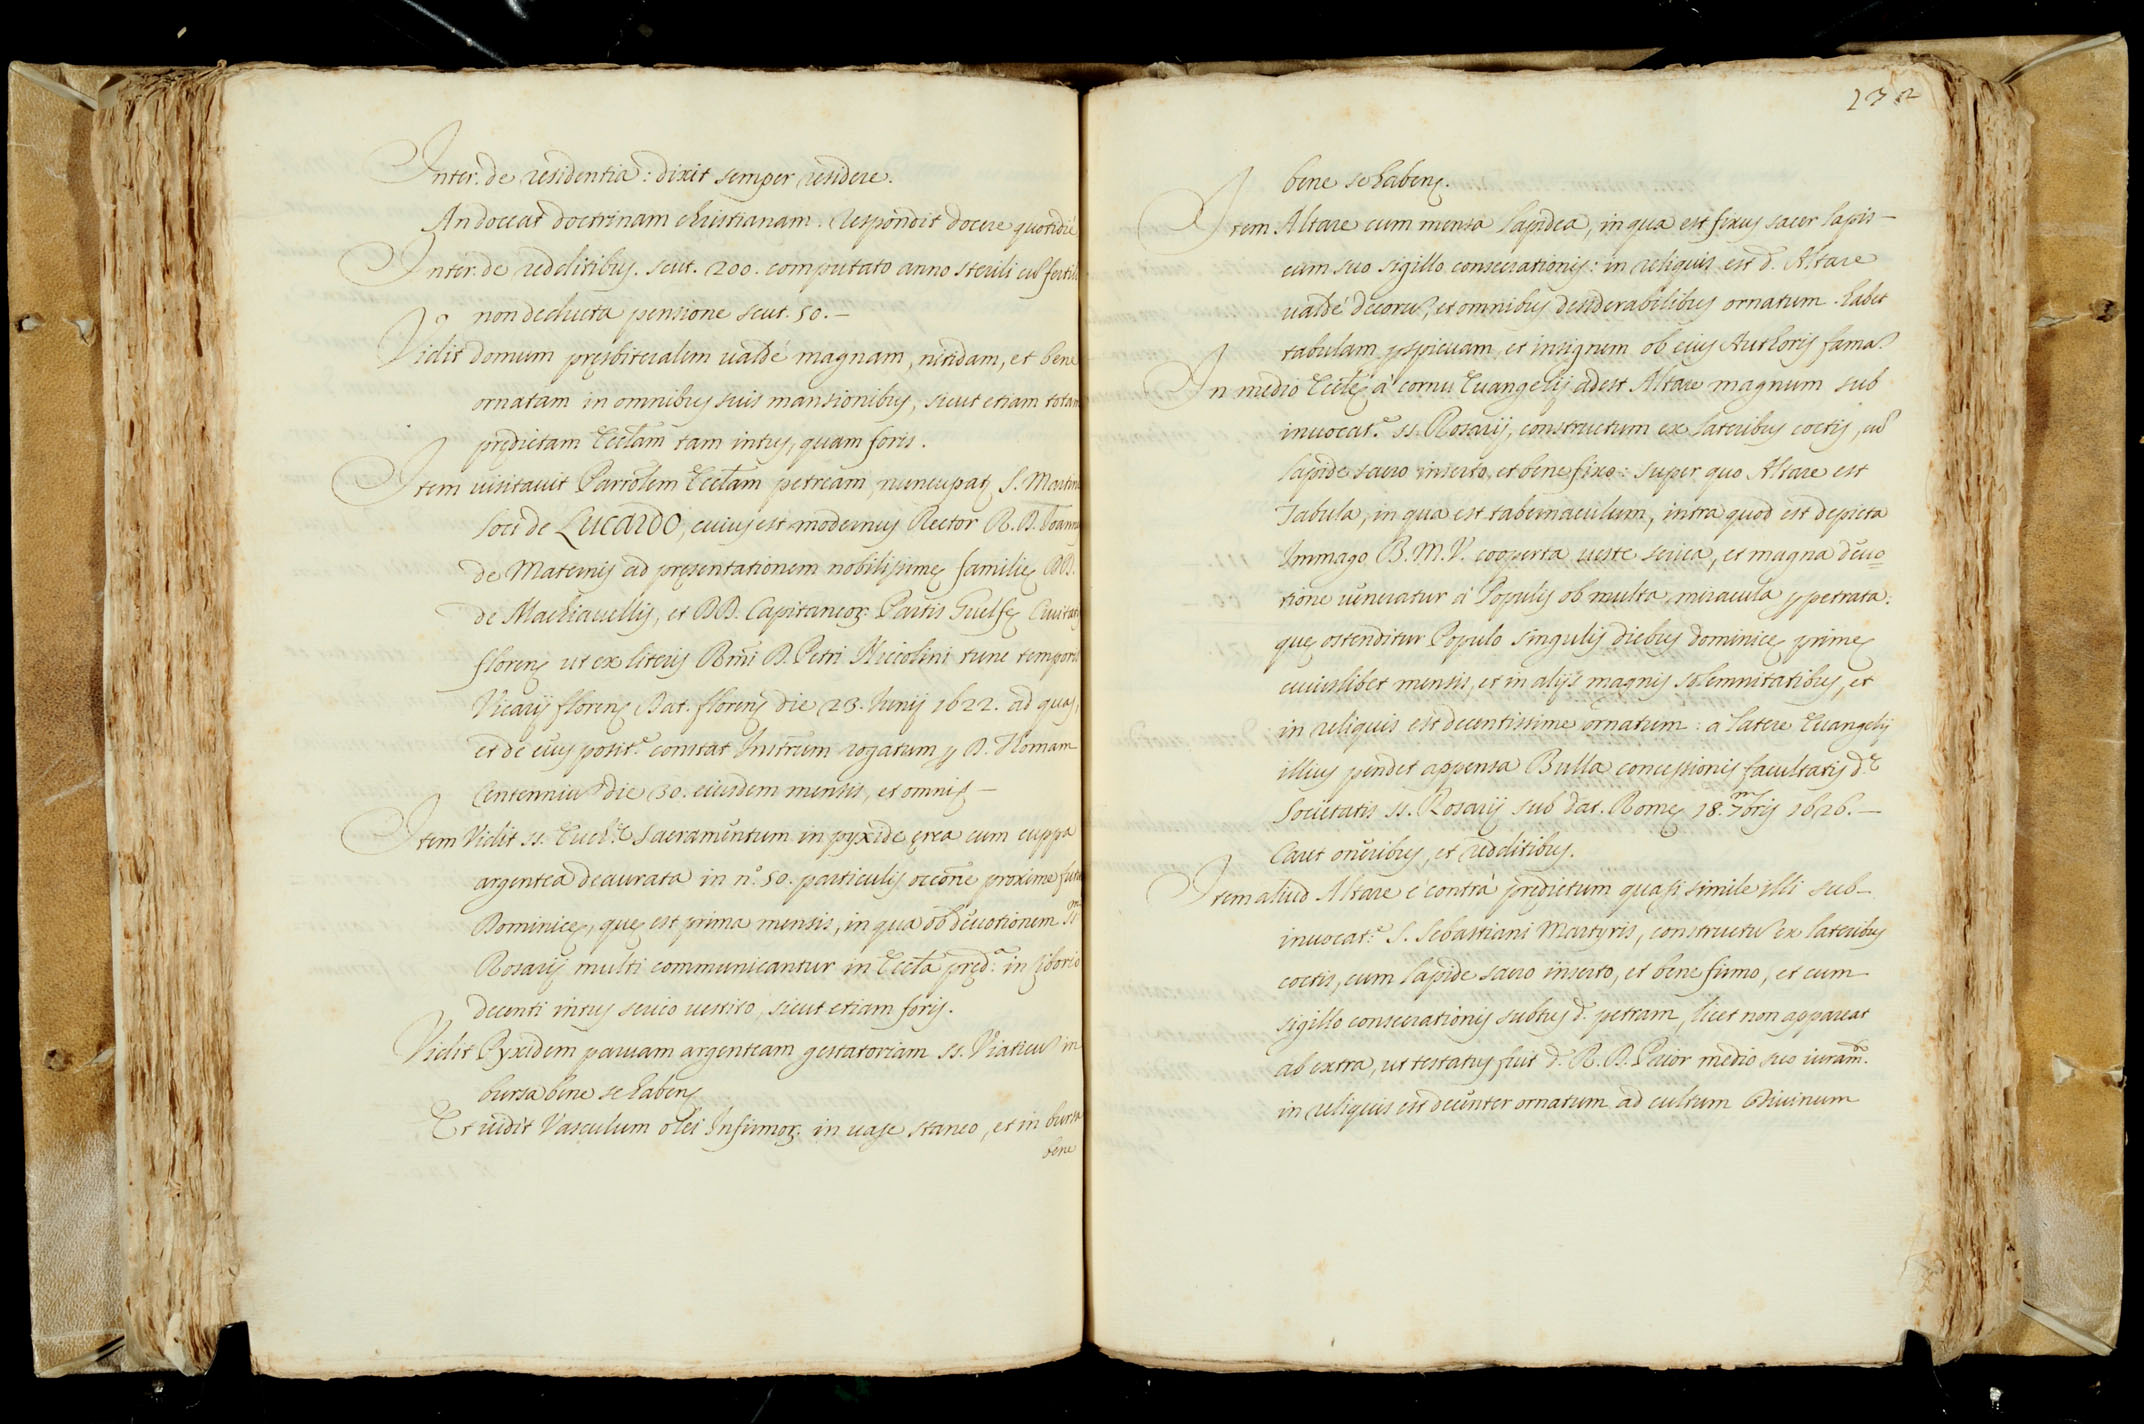 Inter. de residentia: dixit semper residere.
An doceat doctrinam christianam. Respondit docere quotidié
Inter. de redditibus. scut. 200. computato anno sterili cũ fertili
non deducta pensione scut. 50.—
Vidit domum pręsbiteralem valdé magnam, nitidam, et bene
ornatam in omnibus suis mansionibus, sicut etiam totam
prędictam Eccłam tam intus, quam foris.
Item visitavit Parrolem Eccłam petream, nuncupatę S. Martini
loci de Lucardo, cuius est modernus Rector R. D. Joannes
de Maternis ad pręsentationem nobilissimę familię DD.
de Machiavellis, et DD. Capitaneoꝝ Partis Guelfę Civitatis
florenę ut ex literis Rmi D. Petri Niccolini tunc temporis
Vicarij florenę Dat. florenę die 23. Junij 1622. ad quas,
et de eius posit.e constat Instrum rogatum ꝑ D. Thomam
Centenniũ die 30. eiusdem mensis, et omnię—
Item Vidit ss. Euch.e Sacramentum in pyxide ęrea cum cuppa
argentea deaurata in n.o 50. particulis occõne proximę futurę
Dominicę, quę est prima mensis, in qua ob devotionem ss.mi
Rosarij multi communicantur in Eccła pręd.a in siborio
decenti intus serico vestito, sicut etiam foris.
Vidit Pyxidem parvam argenteam gestatoriam ss. Viaticũ in
bursa bene se habenę
Et vidit Vasculum olei Infirmoꝝ. in vase staneo, et in bursa
bene
232
bene se habenę.
Item Altare cum mensa lapidea, in qua est fixus sacer lapis—
cum suo sigillo consecrationis: in reliquis est d. Altare
valdé decorũ, et omnibus desiderabilibus ornatum. habet
tabulam ꝑspicuam, et insignem ob eius Authoris famã
In medio Eccłę à cornu Evangelij adest Altare magnum sub
invocat.e ss. Rosarij, constructum ex lateribus coctis, cũ
lapide sacro inserto, et bene fixo: super quo Altare est
Tabula, in qua est tabernaculum, intra quod est depicta
Immago B. M. V. cooperta veste serica, et magna devo=
tione veneratur à Populis ob multa miracula ꝑpetrata:
quę ostenditur Populo singulis diebus dominicę primę
cuiuslibet mensis, et in alijs magnis solemnitatibus, et
in reliquis est decentissime ornatum: a latere Evangelij
illius pendet appensa Bulla concessionis facultatis d.e
Societatis ss. Rosarij sub dat. Romę 18. 7mbris 1626.—
Caret oneribus, et redditibus.
Item aliud Altare é contrà prędictum quasi simile illi sub—
invocat.e S. Sebastiani Martyris, constructũ ex lateribus
coctis, cum lapide sacro inserto, et bene firmo, et cum—
sigillo consecrationis subtus d. petram, licet non appareat
ab extra, ut testatus fuit d. R. D. Prior medio suo iuram.to
in reliquis est decenter ornatum ad cultum Divinum